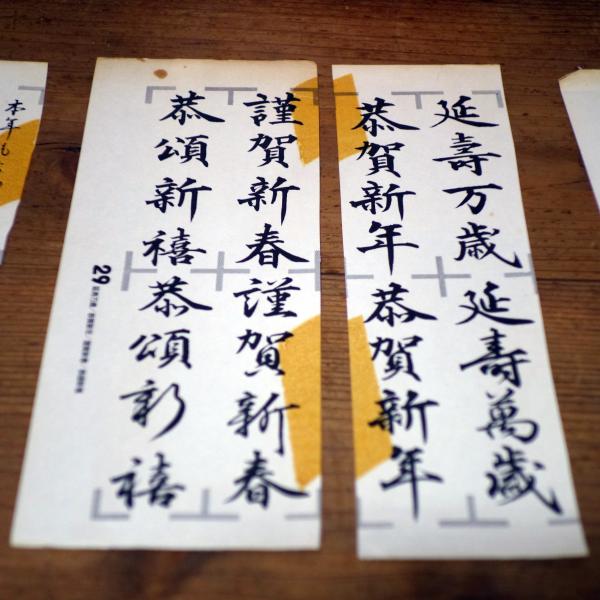 延壽万歳 延壽萬歳
恭賀新年 恭賀新年
謹賀新春 謹賀新春
恭頌新禧 恭頌新禧
29
本年も